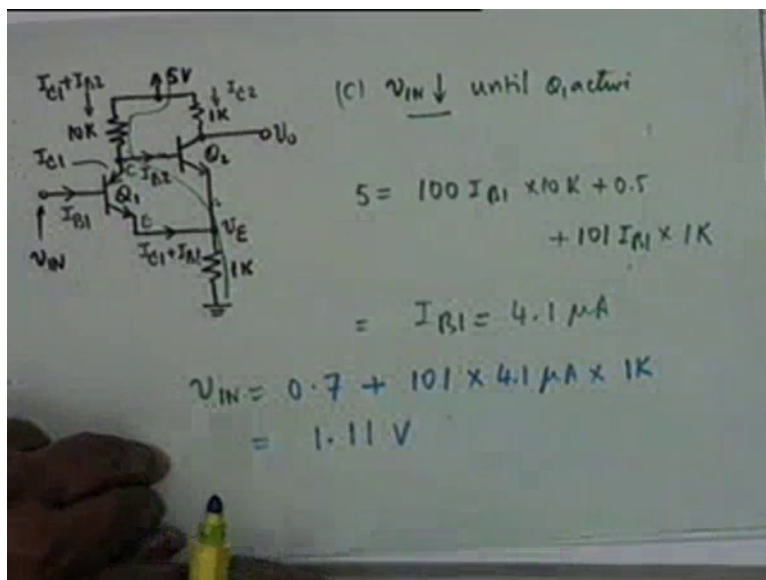 I_C1+I_B2
5V
I_C2
10K
1K
V_0
I_C1
C
I_B2
Q_2
Q_1
I_B1
E
V_E
V_IN
I_C1+I_B1
1K
(C) V_IN ↓ until Q_1 active
5 = 100 I_B1 × 10 K + 0.5
+ 101 I_B1 × 1K
= I_B1 = 4.1 μA
V_IN = 0.7 + 101 × 4.1 μA × 1K
= 1.11 V